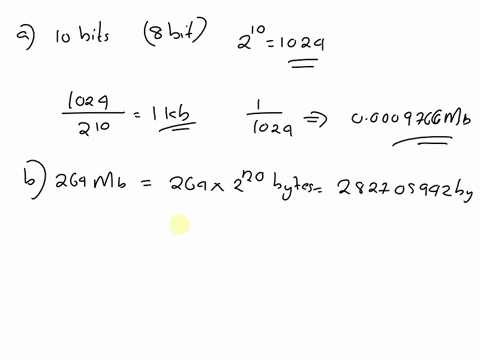 a) 10 bits (8 bit) 2^10 = 1024
1024 / 2^10 = 1 kb 1 / 1024 ⇒ 0.0009766 Mb
b) 264 Mb = 264 x 2^20 bytes = 282705992 by